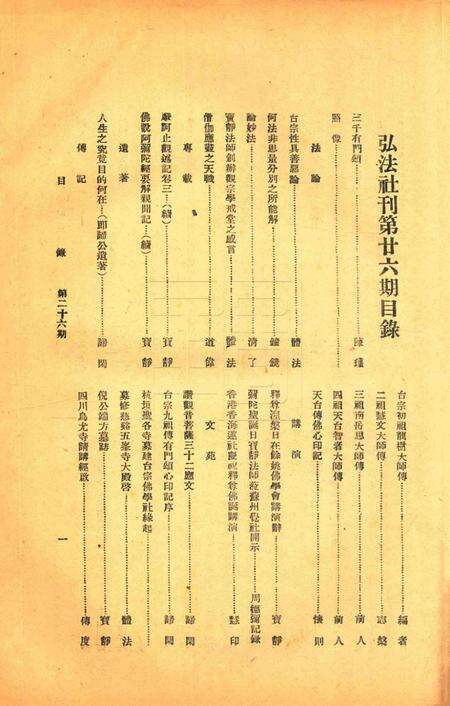 弘法社刊第廿六期目錄
三千有門頌……陳瓘
照像
法論
台宗性具善惡論……體法
何法非思量分別之所能解……鏡
論妙法……清了
寶靜法師創辦觀宗學戒堂之感言……體法
僧伽應盡之天職……道偉
專載
摩訶止觀述記卷三…（續）……寶靜
佛說阿彌陀經要解親聞記…（續）……寶靜
遺著
人生之究竟目的何在…（即諦公遺著）……諦閑
傳記
目錄 第二十六期
台宗初祖龍樹大師傳……編者
二祖慧文大師傳……志磐
三祖南岳思大師傳……前人
四祖天台智者大師傳……前人
天台傳佛心印記……懷則
講演
釋尊涅槃日在餘姚佛學會講演辭……寶靜
彌陀聖誕日寶靜法師蒞蘇州覺社開示……周德彌記錄
香港香海蓮社慶祝釋尊佛誕講演……默印
文苑
讚觀音菩薩三十二應文……諦閑
台宗九祖傳有門頌心印記序……諦閑
杭垣進各寺募建台宗佛學社緣起
募修慈谿五峯寺大殿啓……體法
倪公鑄方墓誌……寶靜
四川烏尤寺請講經啟……傳度
一